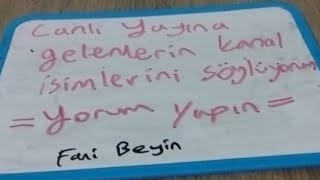 Canlı Yayına
gelenlerin kanal
isimlerini söylüyorum
= Yorum Yapın =
Fani Beyin